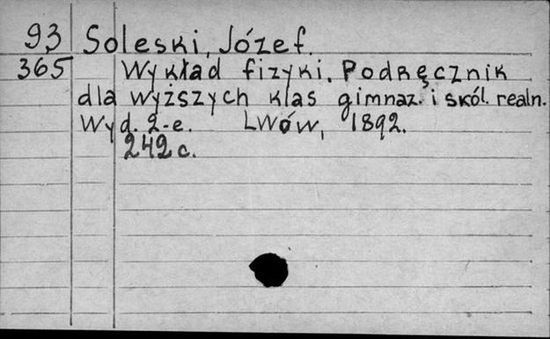 93 Soleski, Józef.
365 Wykład fizyki. Podręcznik
dla wyższych klas gimnaz. i skól. realn.
Wyd. 2-e. Lwów, 1892.
242 c.